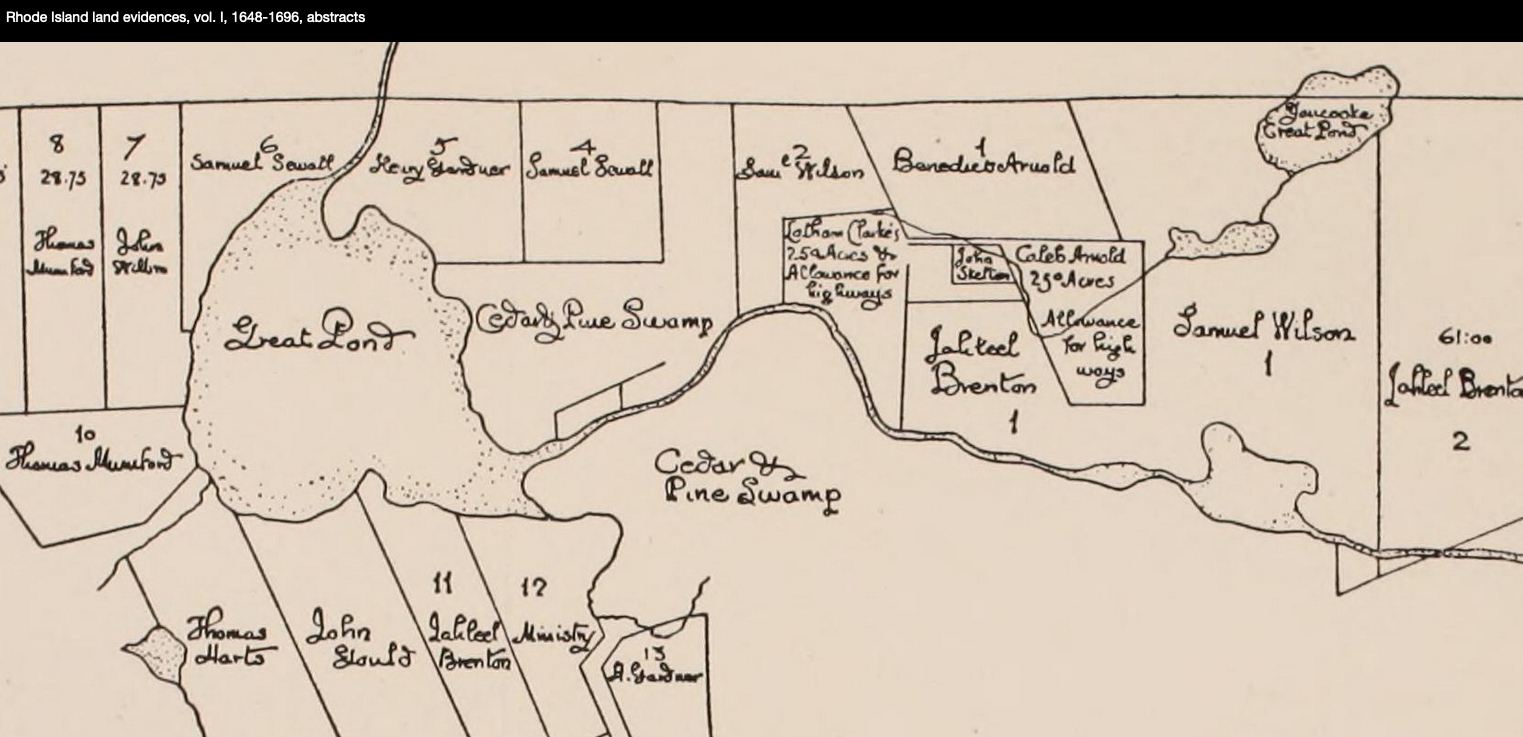 Rhode Island land evidences, vol. I, 1648-1696, abstracts
8
28.75
Thomas
Mumford
7
28.75
John
6
Samuel Sewall
5
Henry Gardner
4
Samuel Sewall
2
Saml Wilson
1
Benedict Arnold
Great Pond
Latham Clarke's
250 Acres &
Allowance for
highways
John
Skelton
Caleb Arnold
250 Acres
Allowance
for high
ways
Great Pond
Cedar & Pine Swamp
Jahleel
Brenton
1
Samuel Wilson
1
61:00
Jahleel Brento
2
10
Thomas Mumford
Cedar &
Pine Swamp
Thomas
Harts
John
Gould
11
Jahleel
Brenton
12
Ministry
13
A. Gardner